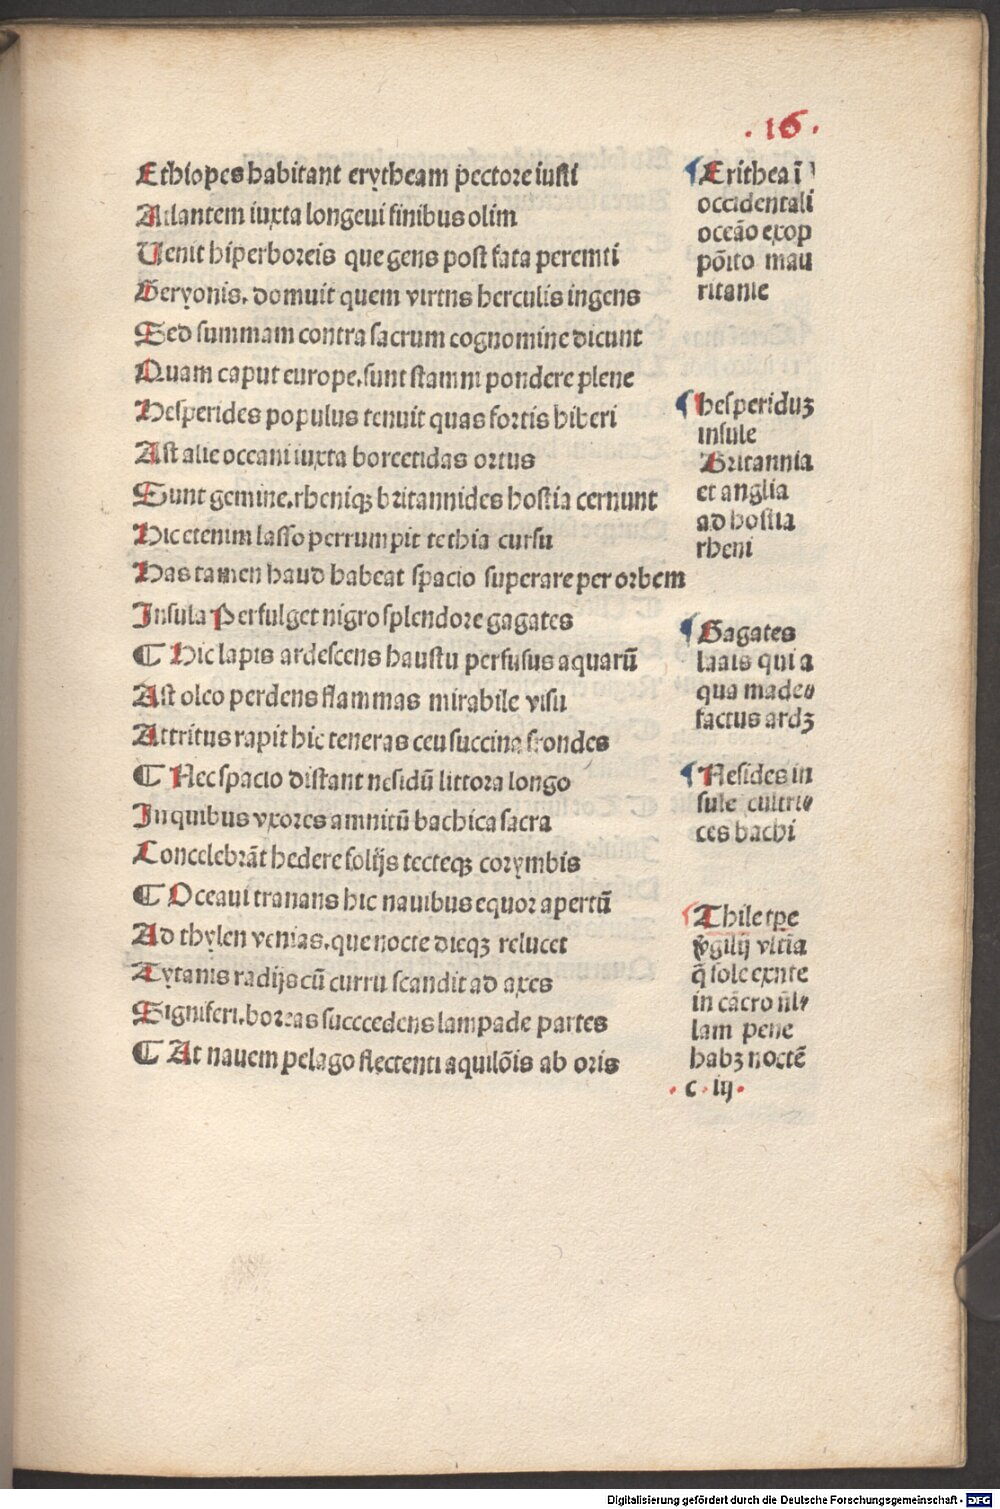 .16.
Ethiopes habitant erytheam pectore iusti
Atlantem iuxta longeui finibus olim
Uenit hiperboreis que gens post fata peremti
Geryonis. domuit quem virtus herculis ingens
Sed summam contra sacrum cognomine dicunt
Quam caput europe. sunt stamni pondere plene
Hesperides populus tenuit quas fortis hiberi
Ast alie occeani iuxta borcetidas ortus
Sunt gemine. rheniqꝫ britannides hostia cernunt
Hic etenim lasso perrumpit tethia cursu
Has tamen haud habeat spacio superare per orbem
Insula Perfulget nigro splendore gagates
¶ Hic lapis ardescens haustu perfusus aquarū
Ast oleo perdens flammas mirabile visu
Attritus rapit hic teneras ceu succina frondes
¶ Nec spacio distant nesidū littora longo
In quibus vxores amnitū bachica sacra
Concelebrāt hedere folijs tecteqꝫ corymbis
¶ Oceaui tranans hic nauibus equor apertū
Ad thylen venias. que nocte dieqꝫ relucet
Tytanis radijs cū curru scandit ad axes
Signiferi. boreas succedens lampade partes
¶ At nauem pelago flectenti aquilōis ab oris
¶ Erithea ī
occidentali
oceāo exop
pōito mau
ritanie
¶ hesperiduꝫ
insule
Britannia
et anglia
ad hostia
rheni
¶ Gagates
laais qui a
qua made⸗
factus ardꝫ
¶ Nesides in
sule cultri⸗
ces bachi
¶ Thile tpe
v̄gilij vltīa
q̄ sole exnte
in cācro n̄l⸗
lam pene
habꝫ noctē
. c . iij .
Digitalisierung gefördert durch die Deutsche Forschungsgemeinschaft - DFG